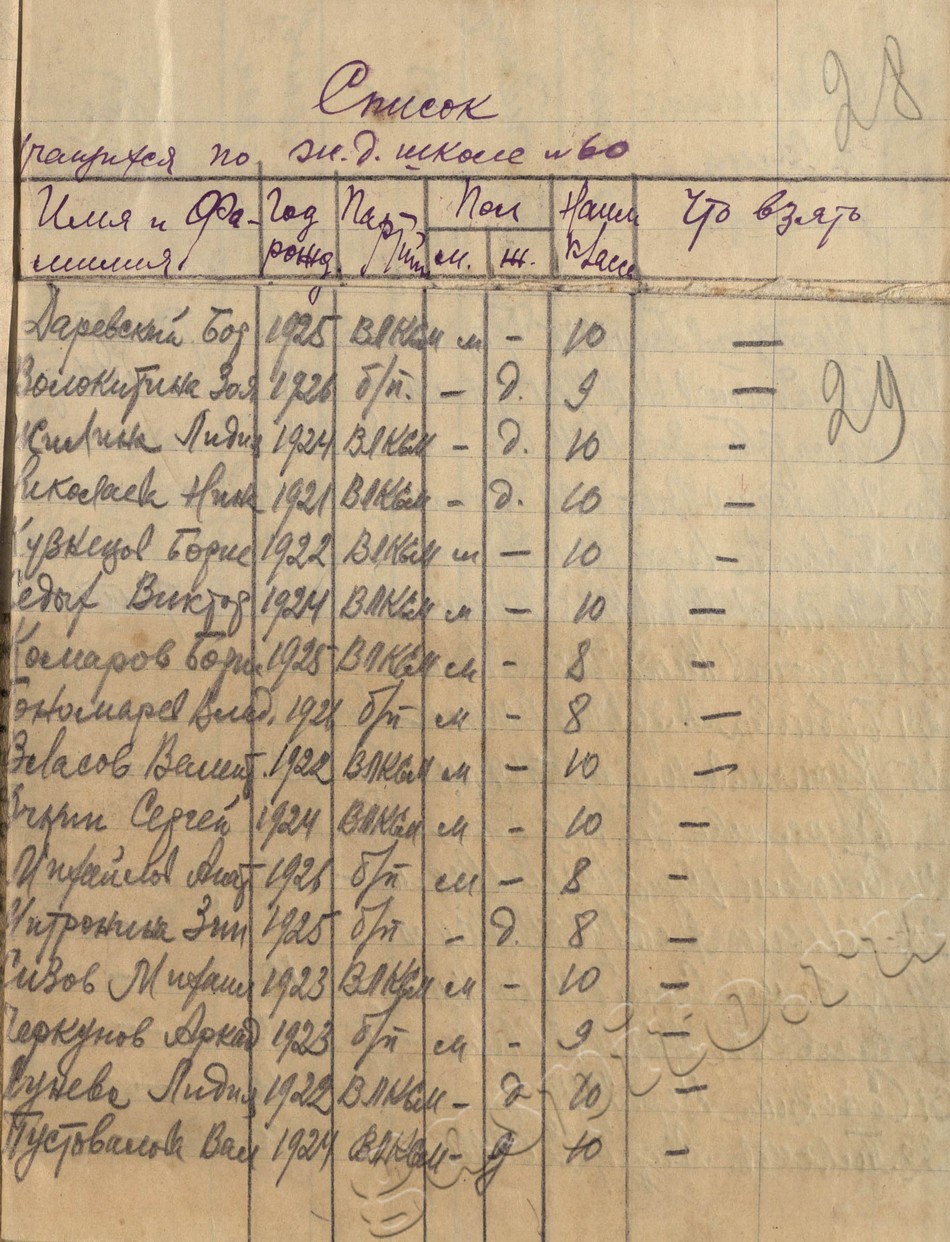 28
Список
учащихся по ж.д. школе №60
Имя и Фа-милия Год рожд Партий Пол м. ж. Наим класс Что взять
Даревский Бор 1925 ВЛКСМ м - 10 —
Волокитина Зоя 1926 б/п. - д. 9 —
29
Лидия 1924 ВЛКСМ - д. 10 -
Николаева Нина 1921 ВЛКСМ - д. 10 —
Кузнецов Борис 1922 ВЛКСМ м — 10 -
Седых Виктор 1924 ВЛКСМ м — 10 —
Комаров Борис 1925 ВЛКСМ м - 8 -
Пономарев Влад. 1926 б/п м - 8 —
Власов Валент. 1922 ВЛКСМ м - 10 —
Сергей 1924 ВЛКСМ м - 10 —
Михайлов Анат 1926 б/п м — 8 -
Митронина Зин 1925 б/п - д. 8 —
Сизов Михаил 1923 ВЛКСМ м - 10 —
Черкунов Аркад 1923 б/п м - 9 —
Лидия 1922 ВЛКСМ - д 10 —
Пустовалова Вал 1924 ВЛКСМ - д 10 —